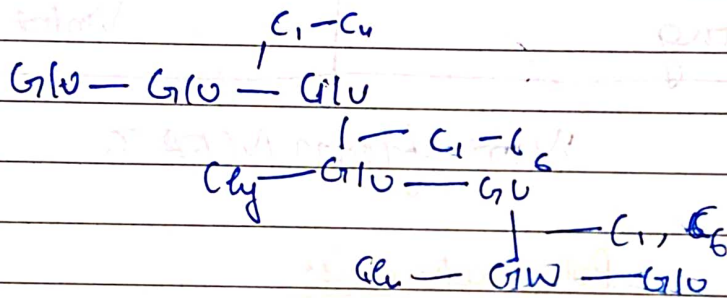 C₁-C₄
Glu - Glu - Glu
C₁-C₆
Glu - Glu
C₁, C₆
Glu - Glu - Glu